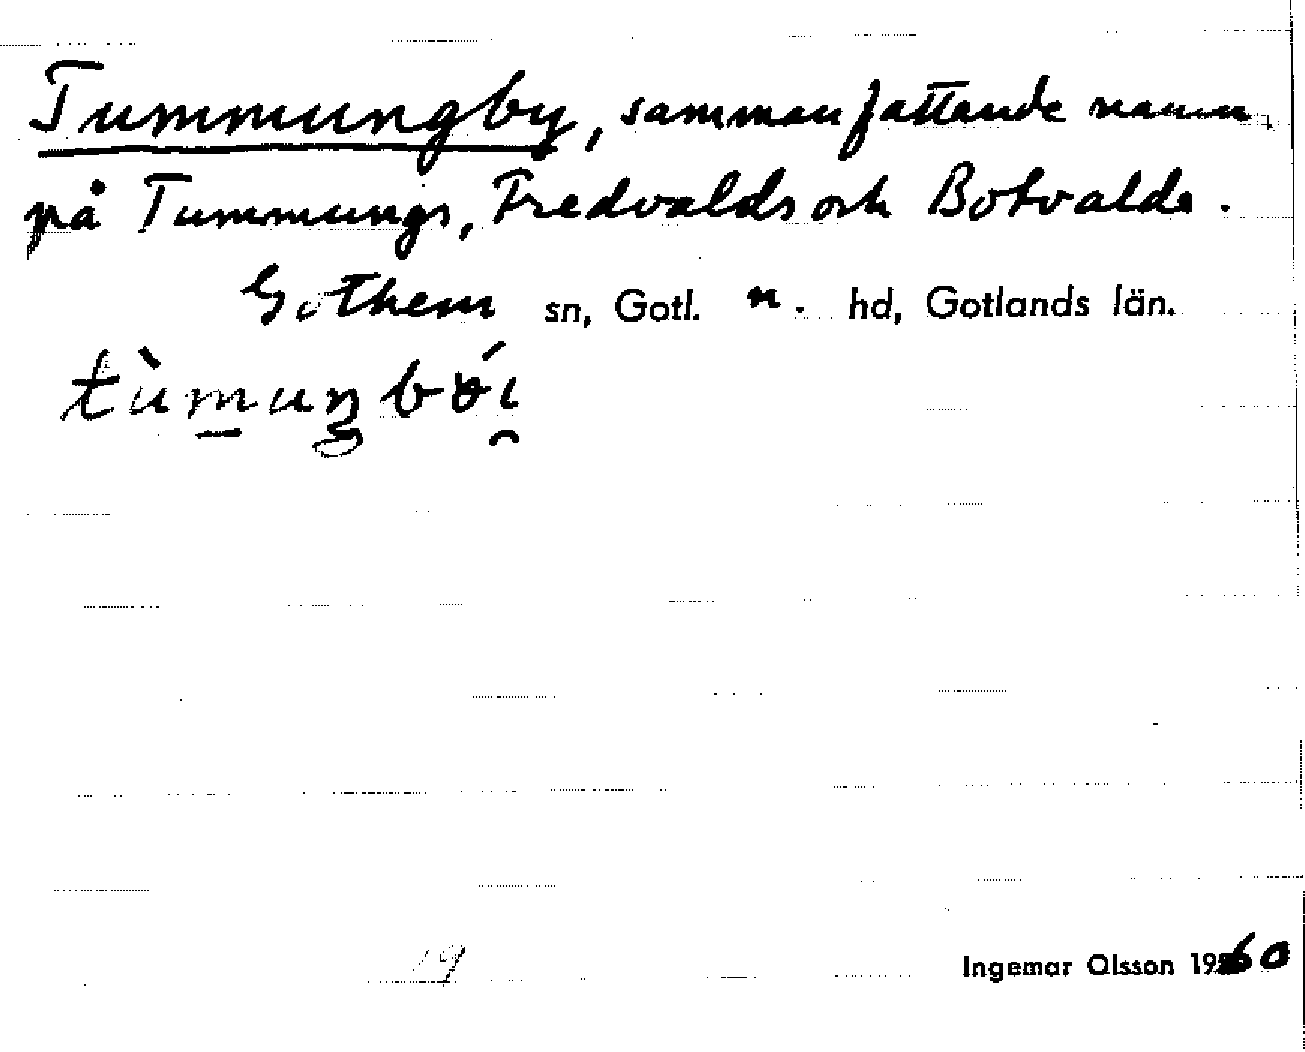 Tummungby, sammanfattande namn
på Tummungs, Fredvalds och Botvalde.
Gothem sn, Gotl. n. hd, Gotlands län.
tùmuŋbɵ́i
19
Ingemar Olsson 1960